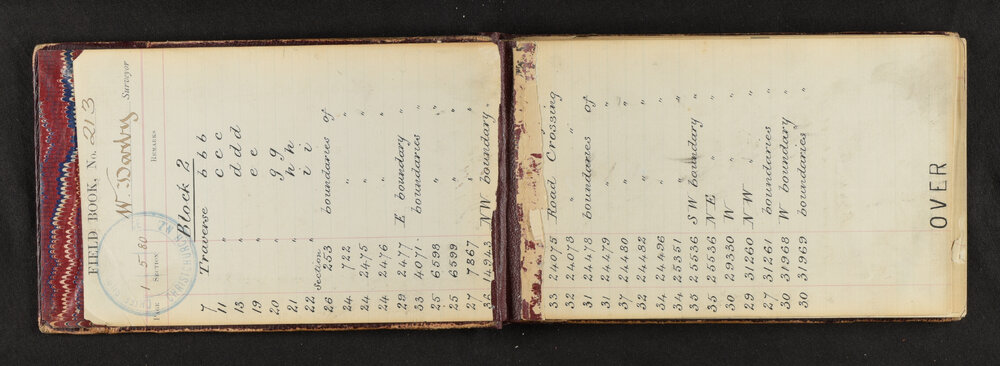 FIELD BOOK, No. 213
Darby Surveyor
PAGE SECTION REMARKS
1 5 80
Block 2
7 Traverse b b b
11 " c c c
13 " d d d
19 " e e
20 " g g
21 " h h
22 " i i
Section
26 253 boundaries of
24 722 " "
24 2475 " "
24 2476 " "
29 2477 E boundary "
33 4071 boundaries "
25 6598 " "
25 6599 " "
27 7867 " "
36 14943 NW boundary "
33 24075 Road Crossing
32 24078 " "
31 24478 boundaries of
31 24479 " "
37 24480 " "
32 24482 " "
34 24496 " "
34 25351 " "
35 25536 SW boundary "
35 25536 NE " "
30 29330 W " "
29 31260 NW " "
27 31261 boundaries "
30 31968 W boundary "
30 31969 boundaries "
OVER